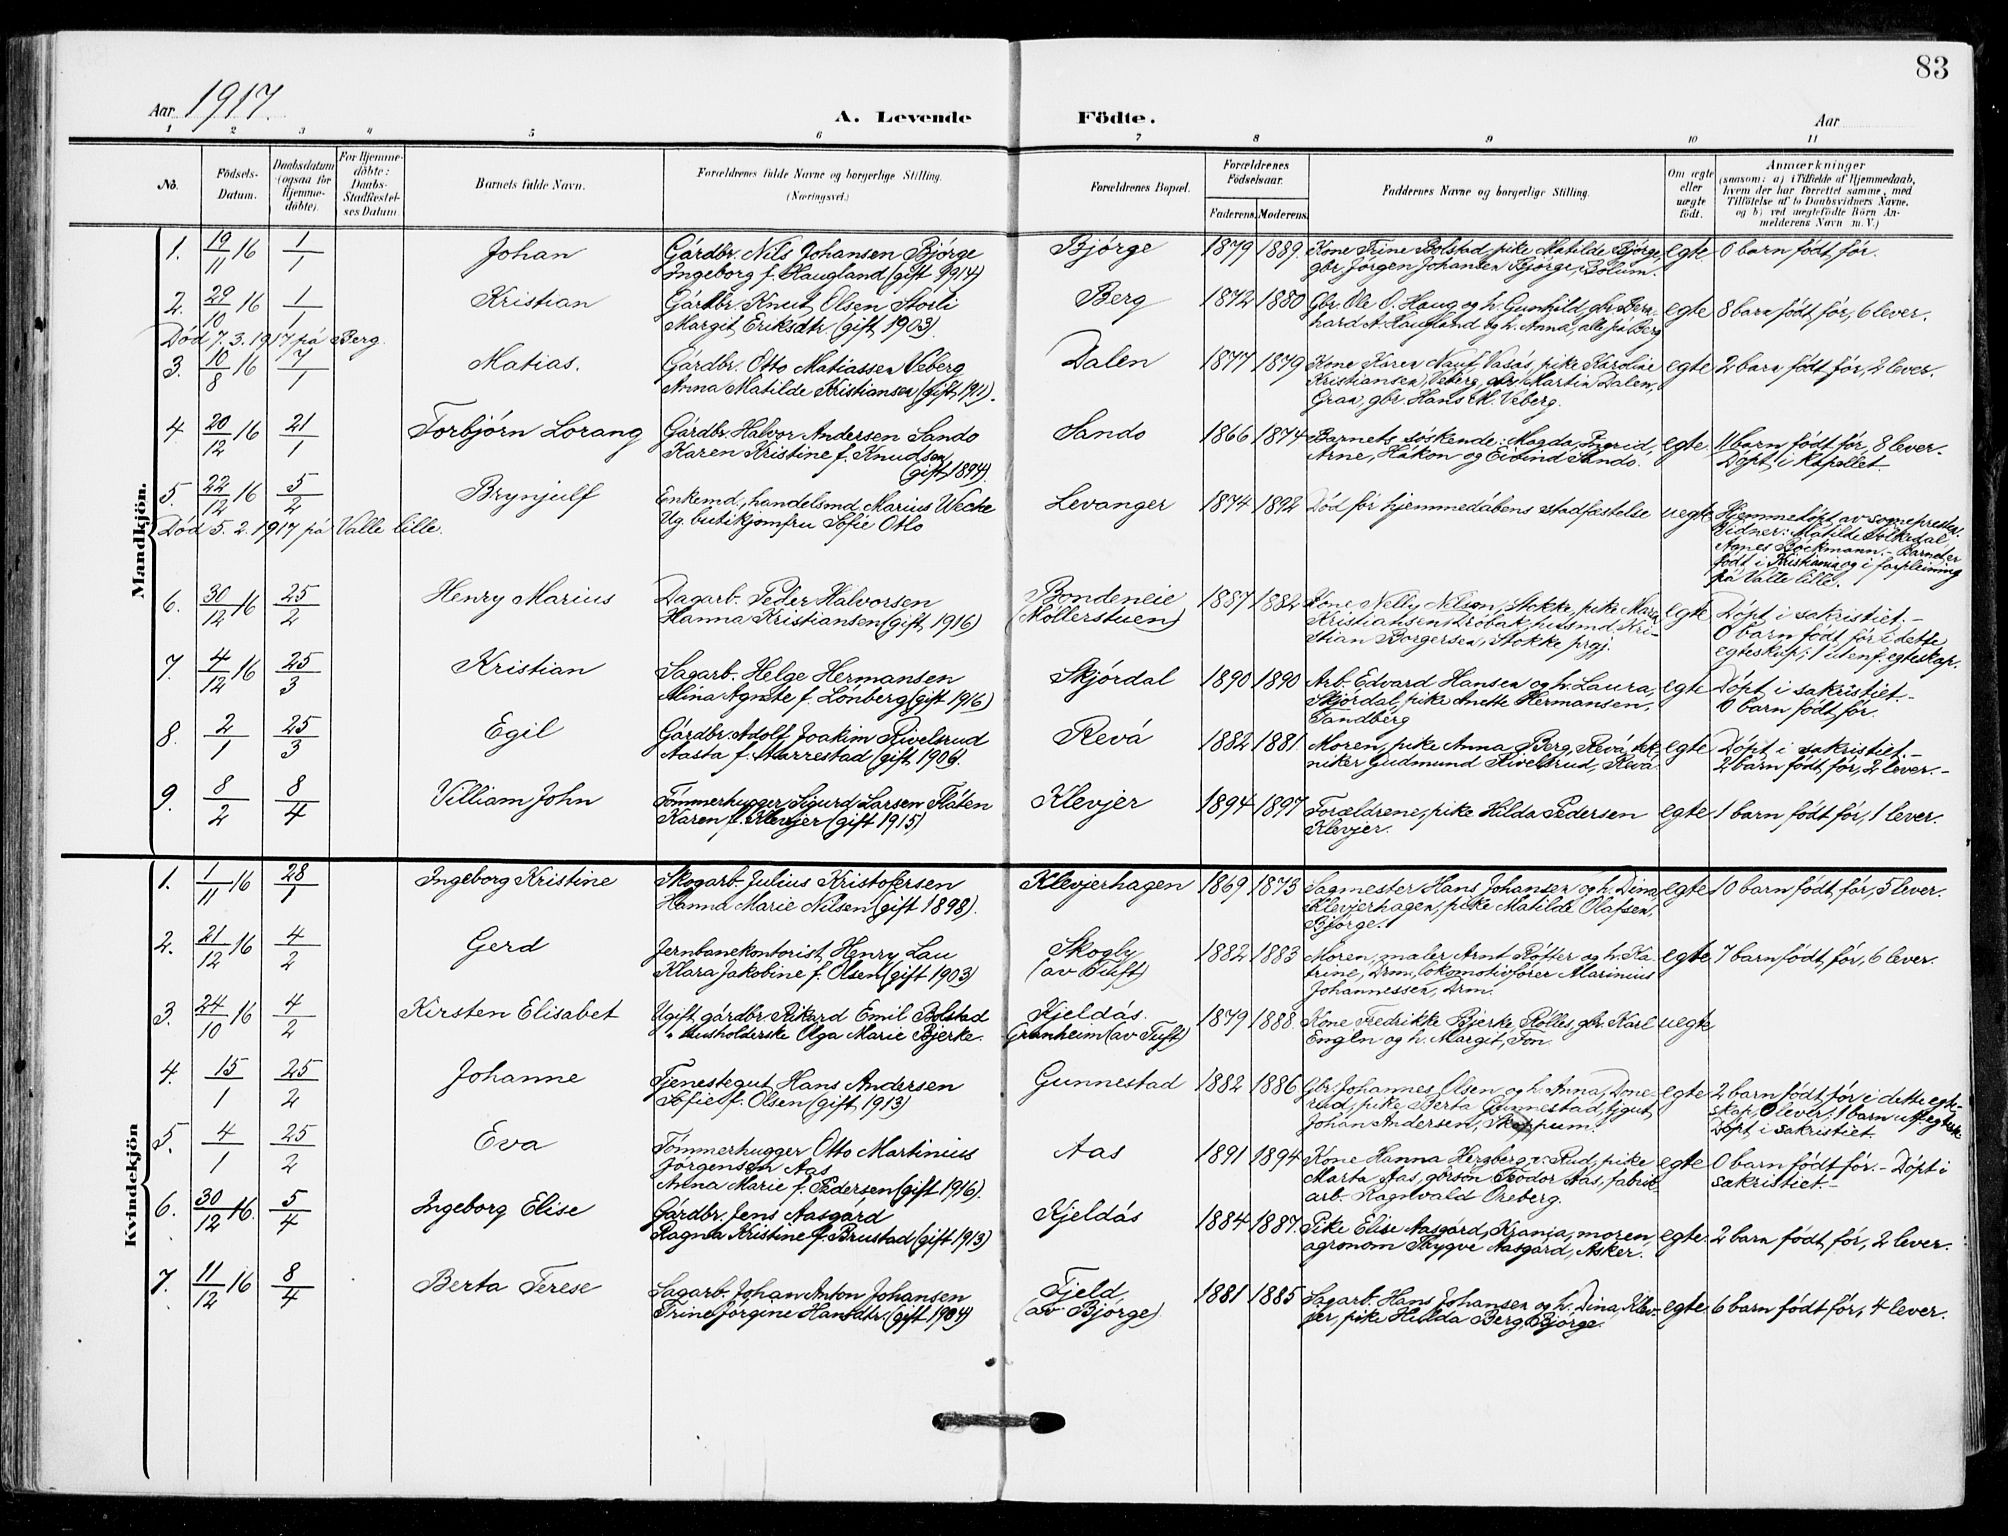 83
Aar 1917.
A. Levende Födte.
Aar
1 2 3 4 5 6 7 8 9 10 11
No. Födsels-Datum. Daabsdatum (ogsaa for Hjemme-döbte). For Hjemme-döbte: Daabs-Stadfæstel-ses Datum. Barnets fulde Navn. Forældrenes fulde Navne og borgerlige Stilling. (Næringsvei.) Forældrenes Bopæl. Forældrenes Födselsaar. Faderens. Moderens. Faddernes Navne og borgerlige Stilling. Om ægte eller uægte födt. Anmærkninger (saasom: a) i Tilfælde af Hjemmedaab, hvem der har forrettet samme, med Tilföielse af to Daabsvidners Navne. og b) ved uægtefödte Börn An-melderens Navn m. V.)
Mandkjön.
1. 19/11 16 1/1 Johan Gårdbr. Nils Johansen Bjørge Bjørge 1879 1889. Kone Trine Bolstad, pike Matilde Bjørge, egte. 0 barn født før.
Ingeborg f. Haugland (gift 1914) gbr. Jørgen Johansen Bjørge, Bolum.
2. 29/10 16 1/1 Kristian Gårdbr. Knut Olsen Storli Berg 1872 1880 Gbr. Ole O. Haug og h. Gunhild, gbr. Bern- egte 8 barn født før, 6 lever.
Margit Eriksdtr. (gift 1903). hard A. Haugland og h. Anna, alle på Berg
Død 7.3.1917 på Berg.
3. 10/8 16 7/1 Matias. Gårdbr. Otto Matiassen Veberg Dalen 1877 1879 Kone Karen Nauf, Vasås, pike Karoline egte 2 barn født før, 2 lever.
Anna Matilde Kristiansen (gift 1911). Kristiansen, Veberg, gbr. Martin Dalen,
Gran, gbr. Hans M. Veberg.
4 20/12 16 21/1 Torbjørn Lorang Gårdbr. Halvor Andersen Sando Sando 1866 1874 Barnets søskende: Magda, Ingrid, egte. 11 barn født før, 8 lever.
Karen Kristine f. Knudsen Arne, Håkon og Eivind Sando. Døpt i kapellet.
(gift 1894).
5. 22/12 16 5/2 Brynjulf Enkemd., handelsmd. Marius Wecke Levanger 1874 1892 Død før hjemmedåbens stadfæstelse uegte Hjemmedøpt av sognepresten.
Ug. butikjomfru Sofie Otto Vidner: Matilde Solksdal,
Død 5.2.1917 på Valle lille. Agnes Bøckmann. - Barnet er
født i Kristiania og i forpleining
på Valle lille.
6. 30/12 16 25/2 Henry Marius Dagarb. Peder Halvorsen Bondeneie 1887 1882 Kone Nelly Nilsen, Stokke, pike Mara egte Døpt i sakristiet. -
Hanna Kristiansen (gift 1916) (Møllerstuen) Kristiansen, Drøbak, husmd. Kri- 0 barn født før i dette
stian Borgersen, Stokke prgj. egteskap; 1 utenf. egteskap.
7. 4/12 16 25/3 Kristian Sagarb. Helge Hermansen Skjørdal 1890 1890 Arb. Edvard Hansen og h. Laura, egte Døpt i sakristiet. -
Alina Agnete f. Lønberg (gift 1916) Skjørdal, pike Anette Hermansen, 0 barn født før.
Tandberg
8. 2/1 25/3 Egil Gårdbr. Adolf Joakim Rivelsrud Revå 1882 1881 Moren, pike Anna Berg, Revå, tek- egte Døpt i sakristiet. -
Aasta f. Harrestad (gift 1906. niker Gudmund Rivelsrud, Revå. 2 barn født før, 2 lever. -
9. 8/2 8/4 Villiam John Tømmerhugger Sigurd Larsen Flåten Klevjer 1894 1897 Forældrene, pike Hilda Pedersen egte 1 barn født før, 1 lever.
Karen f. Klevjer (gift 1915) Klevjer.
Kvindekjön
1. 1/11 16 28/1 Ingeborg Kristine Skogarb. Julius Kristofersen Klevjerhagen 1869 1873 Sagmester Hans Johansen og h. Dina, egte 10 barn født før, 5 lever.
Hanna Marie Nilsen (gift 1898). Klevjerhagen, pike Matilde Olafsen,
Bjørge.
2. 21/12 16 4/2 Gerd Jernbanekontorist Henry Lau Skogly 1882 1883 Moren, maler Arnt Røffer og h. Ka- egte 7 barn født før, 6 lever.
Klara Jakobine f. Olsen (gift 1903) (av Tuft) trine, Drm., lokomotivfører Marinius
Johannessen, Drm.
3. 24/10 16 4/2 Kirsten Elisabet Ugift gårdbr. Rikard Emil Bolstad Kjeldås. 1879 1888 Kone Fredrikke Bjerke, Rølles, gbr. Karl uegte
" husholderske Olga Marie Bjerke. Granheim (av Tuft) Engln og h. Margit, Fon.
4. 15/1 25/2 Johanne Tjenestegut Hans Andersen Gunnestad 1882 1886 Gbr. Johannes Olsen og h. Anna, Done- egte 2 barn født før i dette egte-
Sofie f. Olsen (gift 1913) rud, pike Berta Gunnestad, tjgut skap, 0 lever; 1 barn utf. egtesk.
Johan Andersen, Skoppum. Døpt i sakristiet.
5. 4/1 25/2 Eva Tømmerhugger Otto Martinius Aas 1891 1894 Kone Hanna Hergberg v. Rud, pike egte 0 barn født før. - Døpt i
Jørgensen Aas Marta Aas, gbrsøn Teodor Aas, fabrik- sakristiet. -
Anna Marie f. Pedersen (gift 1916). arb. Ragnvald Oreberg.
6. 30/12 16. 5/4 Ingeborg Elise Gårdbr. Jens Aasgård Kjeldås 1884 1887. Pike Elise Aasgård, Kr.ania, moren, egte 2 barn født før, 2 lever.
Ragna Kristine f. Brustad (gift 1913) agronom Trygve Aasgård, Asker.
7. 11/12 16 8/4 Berta Terese Sagarb. Johan Anton Johansen Fjeld 1881 1885 Sagarb. Hans Johansen og h. Dina, Klev- egte 6 barn født før, 4 lever.
Trine Jørgine Hansdtr. (gift 1904) (av Bjørge) jer, pike Hulda Berg, Bjørge.